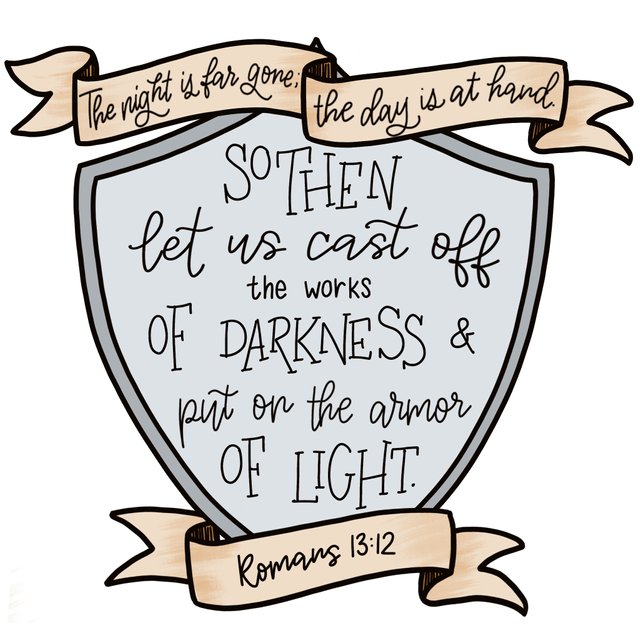 The night is far gone;
the day is at hand.
SO THEN
let us cast off
the works
OF DARKNESS &
put on the armor
OF LIGHT.
Romans 13:12